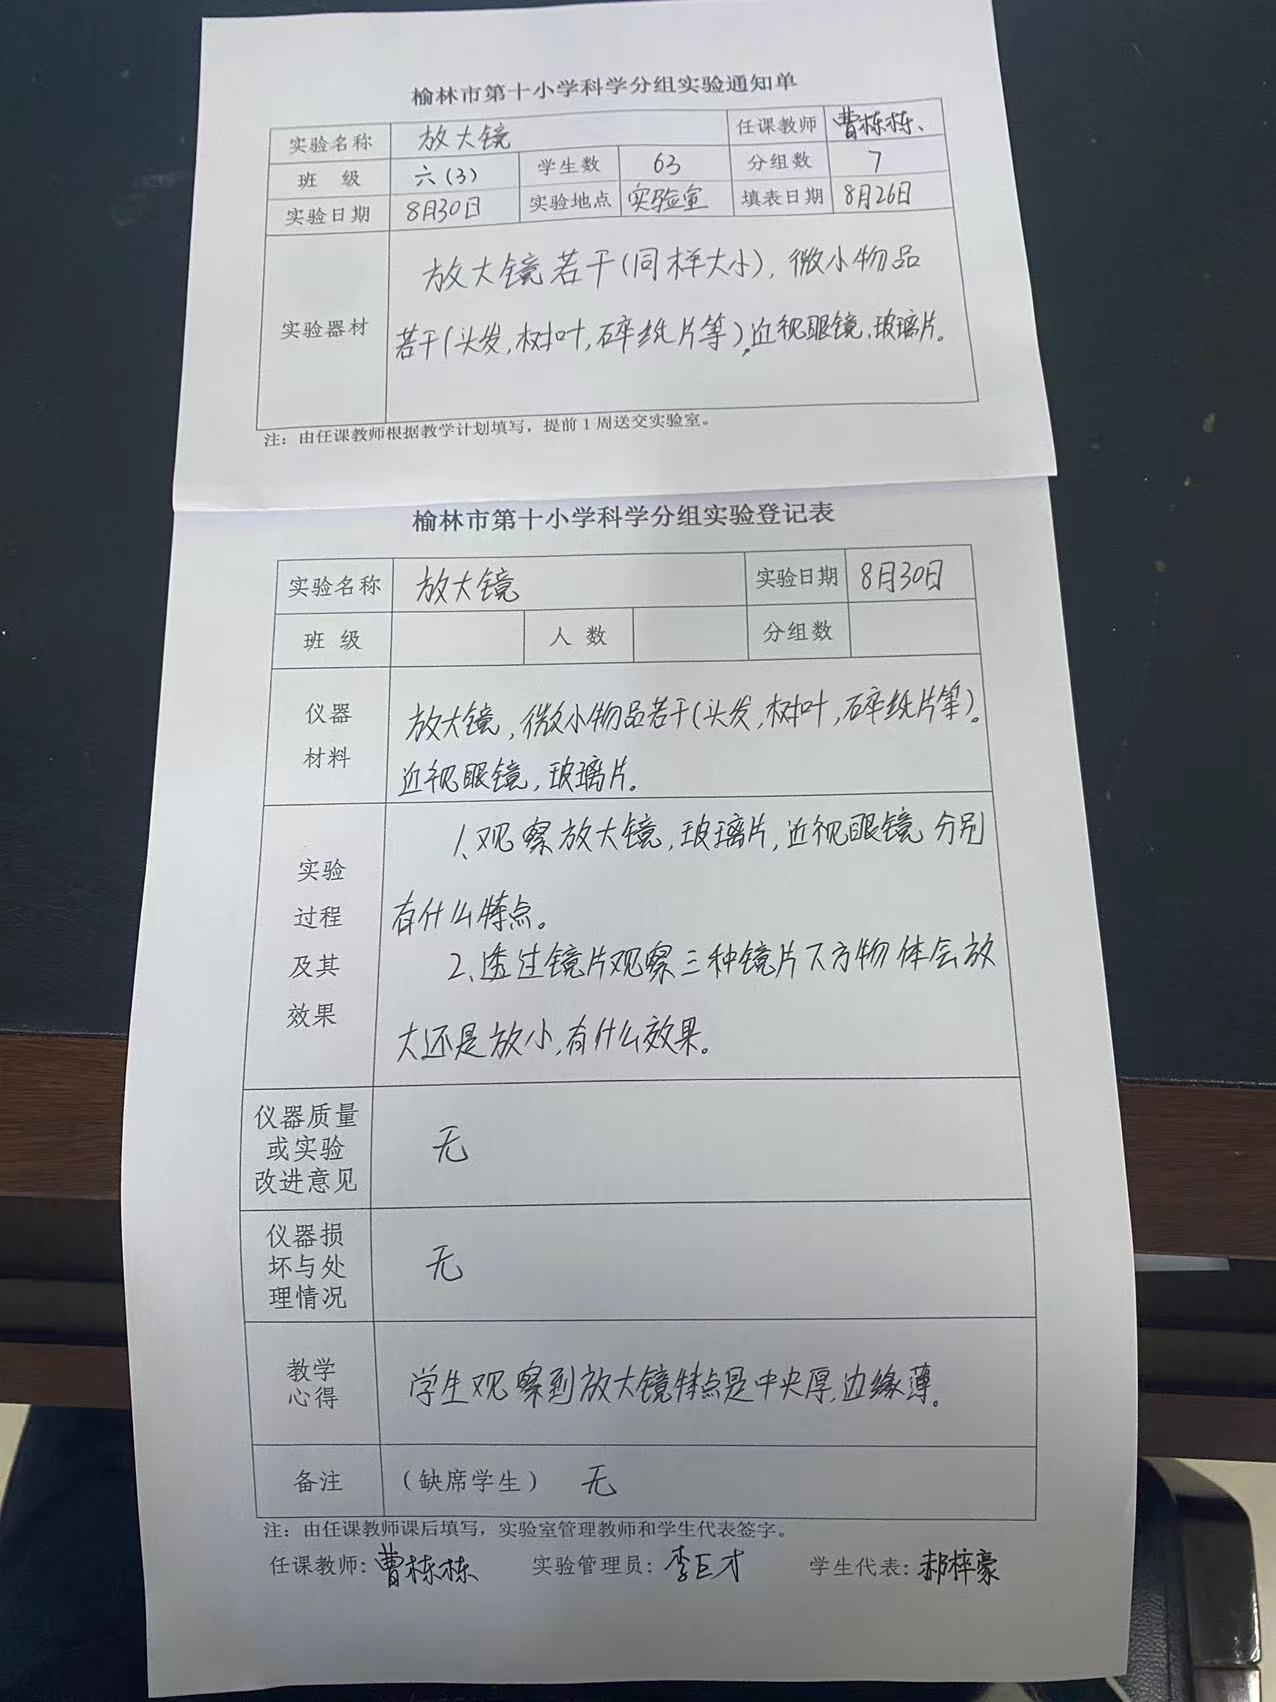 榆林市第十小学科学分组实验通知单
实验名称 放大镜 任课教师 曹栋栋、
班 级 六(3) 学生数 63 分组数 7
实验日期 8月30日 实验地点 实验室 填表日期 8月26日
实验器材
放大镜若干(同样大小)，微小物品
若干(头发,树叶,碎纸片等),近视眼镜,玻璃片。
注：由任课教师根据教学计划填写，提前1周送交实验室。
榆林市第十小学科学分组实验登记表
实验名称 放大镜 实验日期 8月30日
班 级 人 数 分组数
仪器
材料
放大镜,微小物品若干(头发,树叶,碎纸片等)。
近视眼镜,玻璃片。
实验
过程
及其
效果
1、观察放大镜,玻璃片,近视眼镜分别
有什么特点。
2、透过镜片观察三种镜片下方物体会放
大还是放小,有什么效果。
仪器质量
或实验
改进意见
无
仪器损
坏与处
理情况
无
教学
心得
学生观察到放大镜特点是中央厚,边缘薄。
备注 (缺席学生) 无
注：由任课教师课后填写，实验室管理教师和学生代表签字。
任课教师:曹栋栋 实验管理员:李巨才 学生代表:郝梓豪